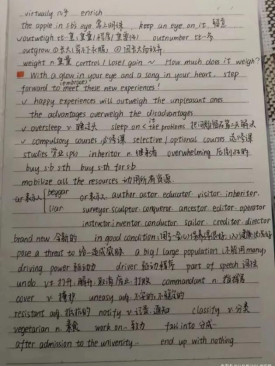 virtually 几乎 enrich
the apple in sb's eye 掌上明珠 keep an eye on it 留意
v outweigh 比…重 (重量) outnumber 比…多
outgrow ①
weight n 重量 control / lose / gain ~ How much does it weigh?
With a glow in your eye and a song in your heart, step
(embrace)
forward to meet these new experiences!
v happy experiences will outweigh the unpleasant ones
the advantages overweigh the disadvantages
v oversleep v 睡过头 sleep on the problems
v compulsory courses 必修课 selective / optional courses 选修课
studies 学业 (pl) inheritor n 继承者 overwhelming
buy sb sth buy sth for sb
mobilize all the resources 动用所有资源
or 表示人 author actor educator visitor inheritor
beggar
liar surveyor sculptor conqueror ancestor editor operator
instructor inventor conductor sailor creditor director
brand new 全新的 in good condition
pose a threat to 给…造成威胁 a big / large population (不能用 many)
driving power 驱动力 driver 驱动程序 part of speech 词性
undo v: 打开, 解开 commandant n 指挥官
cover v 掩护 uneasy adj 不安的
resistant adj 抵抗的 notify v 通知 classify v 分类
vegetarian n 素食 work on 努力 fall into 分成
after admission to the university. end up with nothing